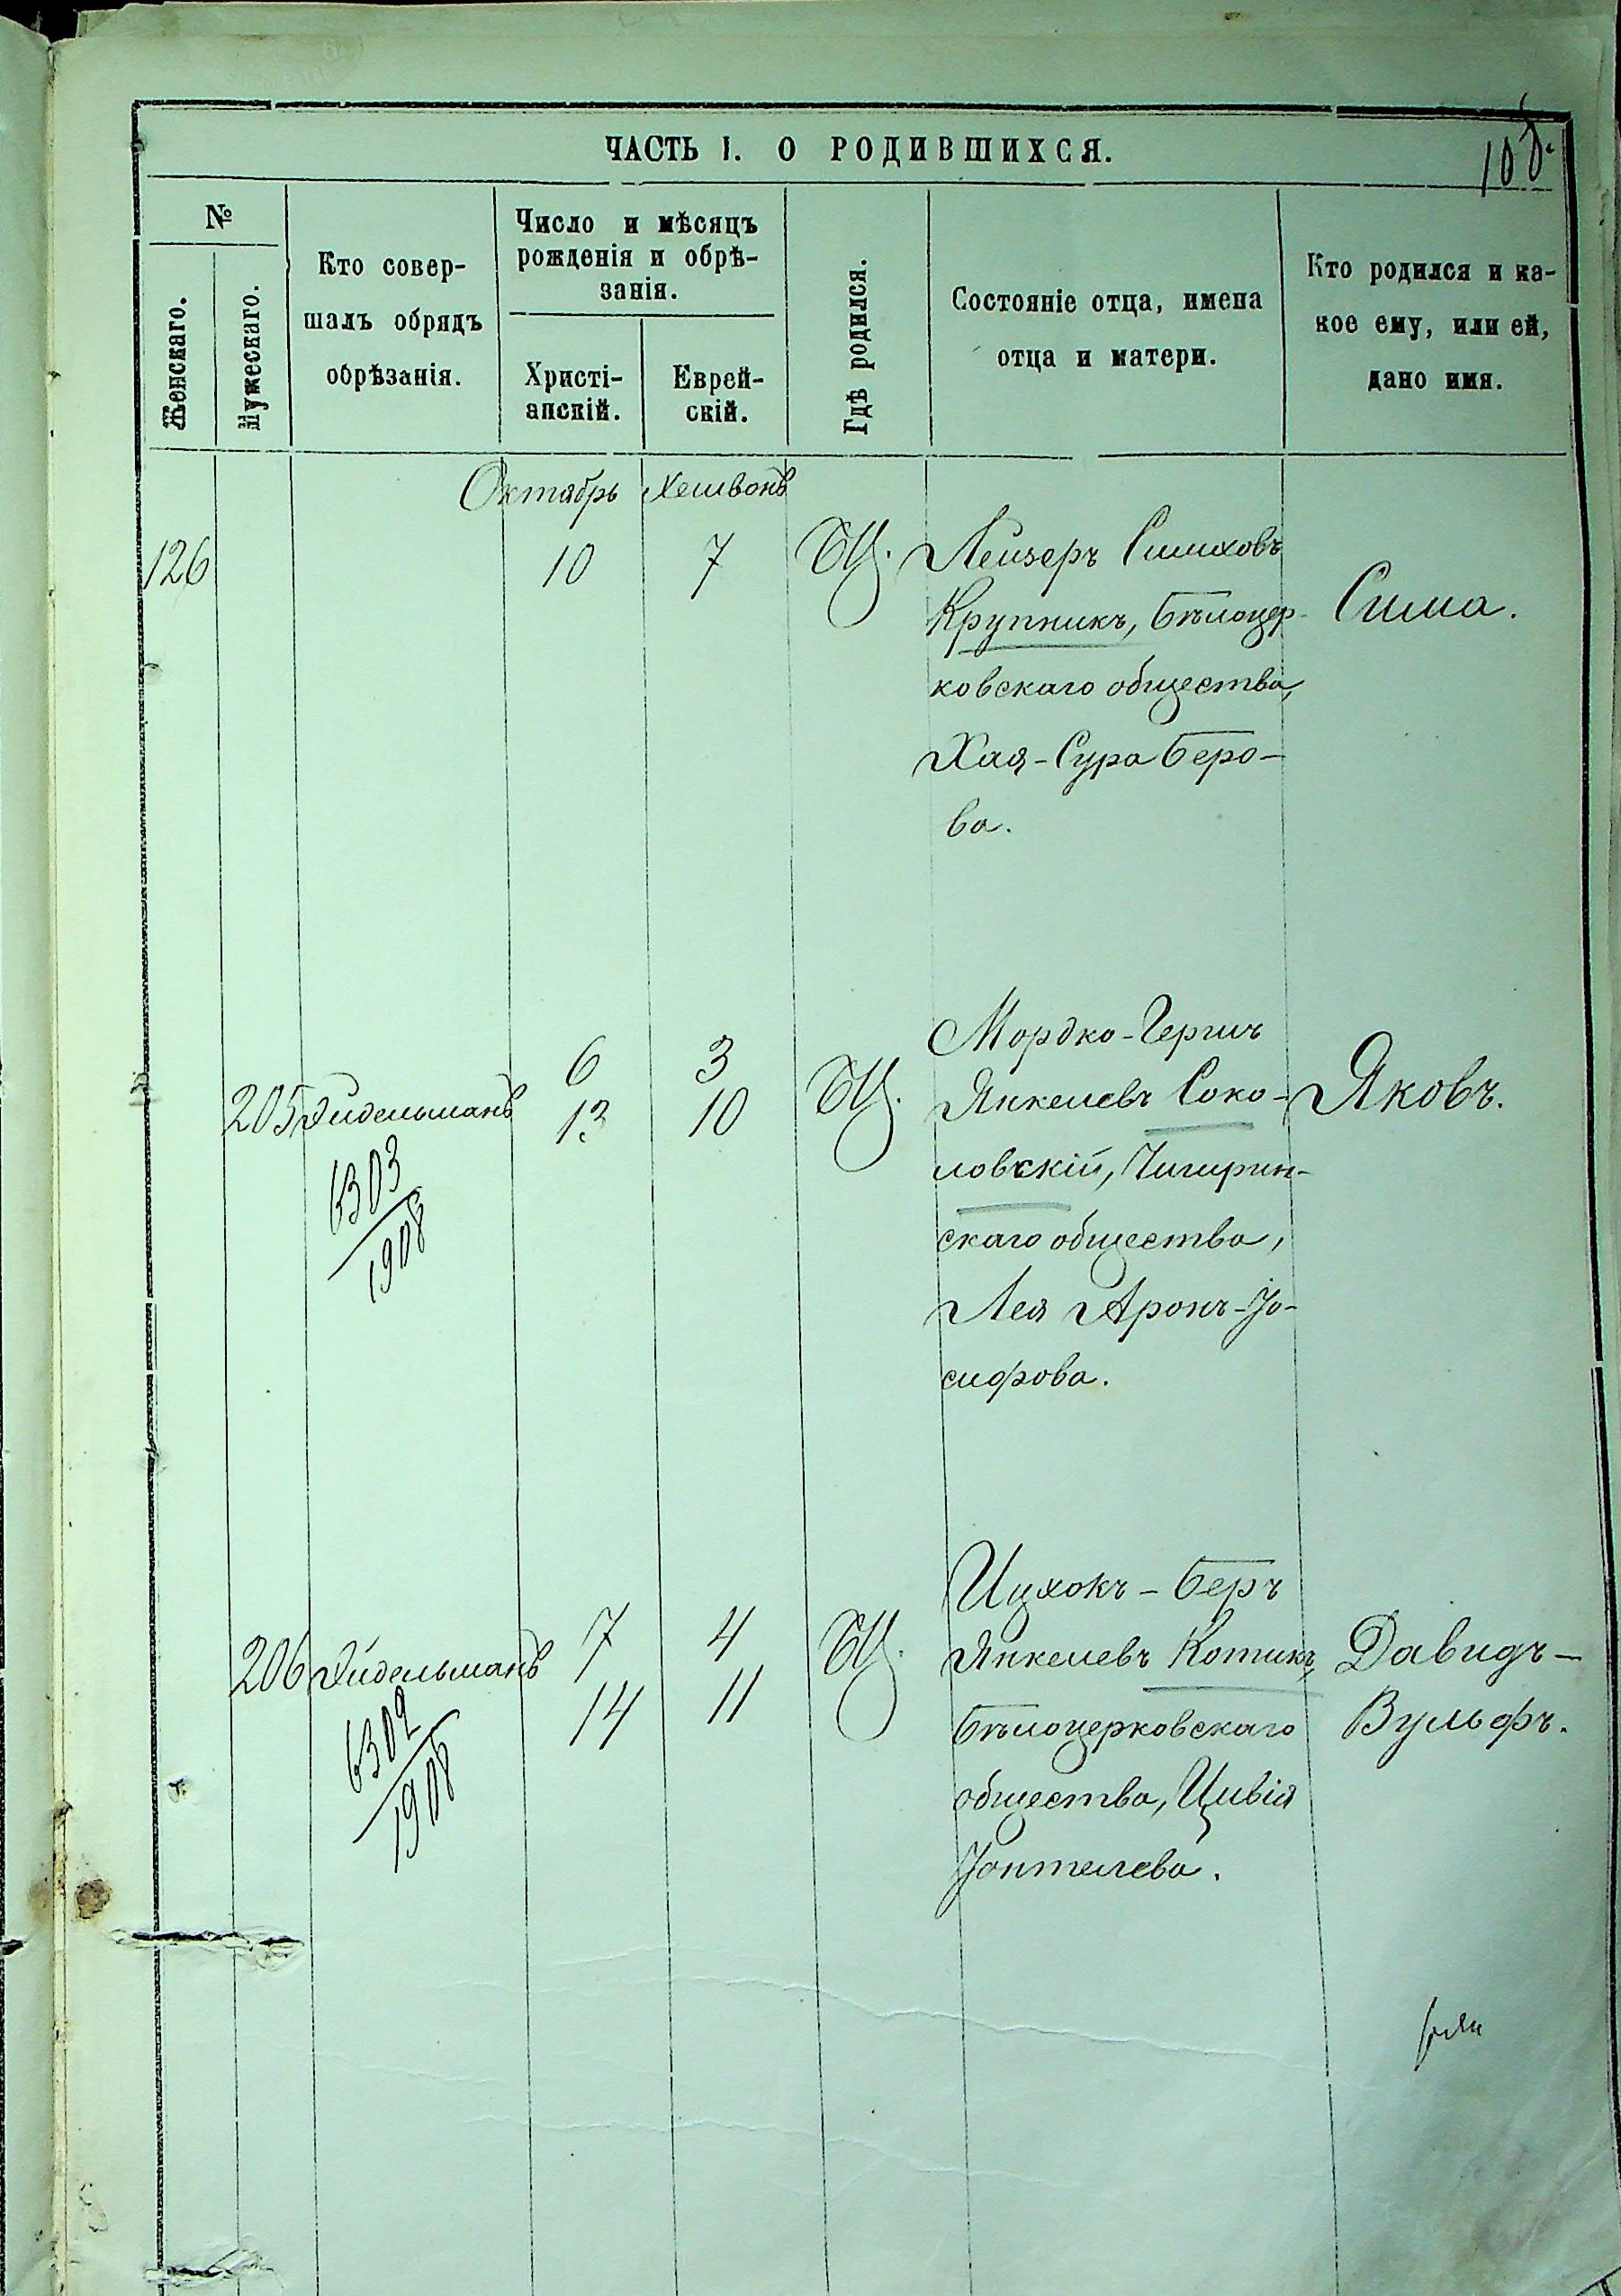 ЧАСТЬ I. О РОДИВШИХСЯ.
108.
№
Женскаго.
Мужескаго.
Кто совер-
шалъ обрядъ
обрѣзанія.
Число и мѣсяцъ
рожденія и обрѣ-
занія.
Христі-
анскій.
Еврей-
скій.
Гдѣ родился.
Состояніе отца, имена
отца и матери.
Кто родился и ка-
кое ему, или ей,
дано имя.
Октябрь Хешвонъ
126 10 7 БЦ. Лейзеръ Симховъ
Крупникъ, Бѣлоцер-
ковскаго общества,
Хая-Сура Беро-
ва.
Сима.
205 Эйдельманъ
6303
1908
6 3
13 10
БЦ.
Мордко-Гершъ
Янкелевъ Соко-
ловскій, Чигирин-
скаго общества,
Лея Аронъ-Іо-
сифова.
Яковъ.
206 Эйдельманъ
6302
1908
7 4
14 11
БЦ.
Ицхокъ-Беръ
Янкелевъ Котикъ,
Бѣлоцерковскаго
общества, Цивія
Іонтелева.
Давидъ-
Вульфъ.